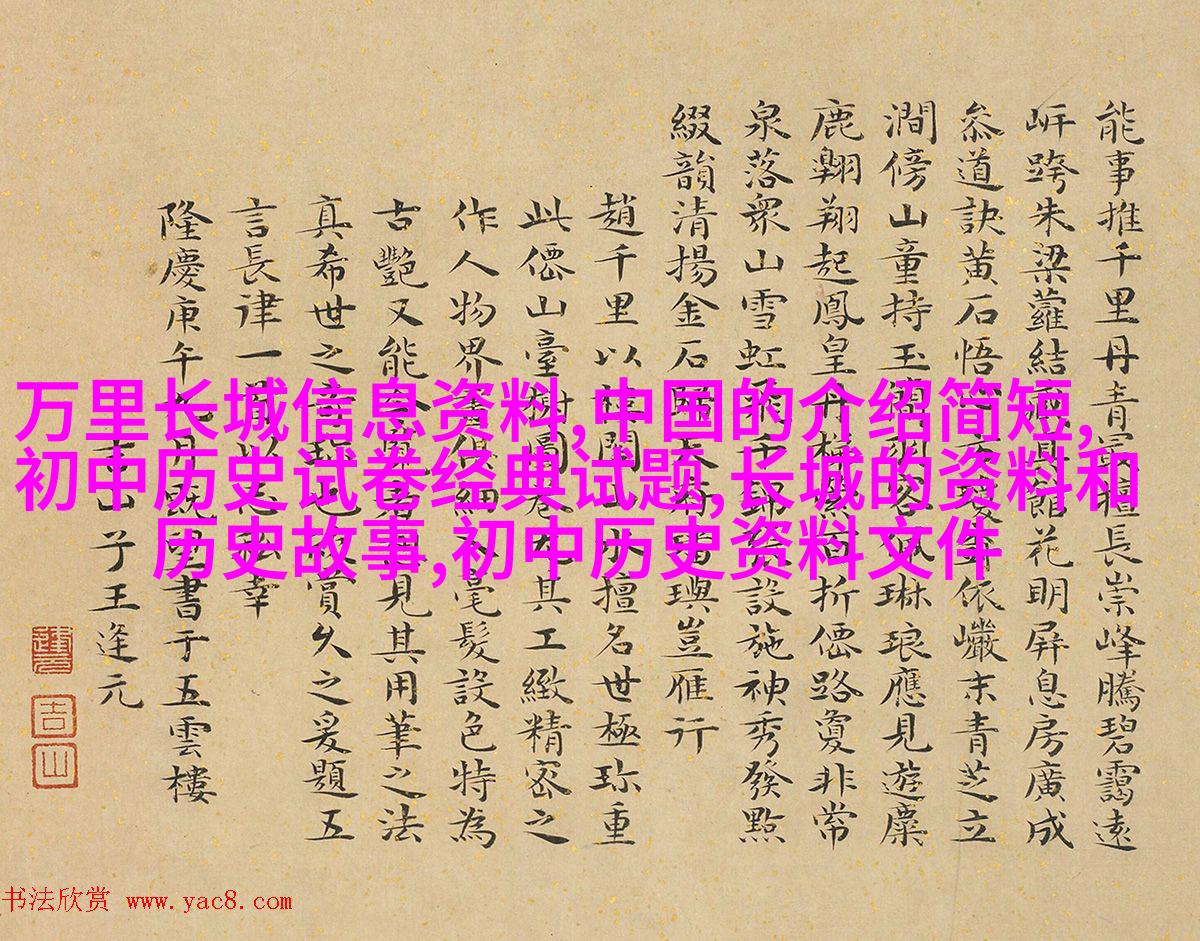 能事推千里丹青
長崇峰騰碧靄遠
岍跨朱梁蘿結
花明屏息房廣成
叅道訣黃石悟
依巘末青芝立
澗傍山童持玉
琳琅應見遊麋
鹿翱翔起鳳皇丹
折僊路敻非常
泉落衆山雪虹
設施神秀發點
綴韻清揚金石
璵豈雁行
趙千里以
擅名世極珎重
此僊山臺
其工緻精密之
作人物界
毫髮設色特為
古艷又能
見其用筆之法
真希世之
賞久之爰題五
言長律一
幸
隆慶庚午
書于五雲樓
山子王逢元
万里长城信息资料,中国的介绍简短,
初中历史试卷经典试题,长城的资料和
历史故事,初中历史资料文件
书法欣赏 www.yac8.com